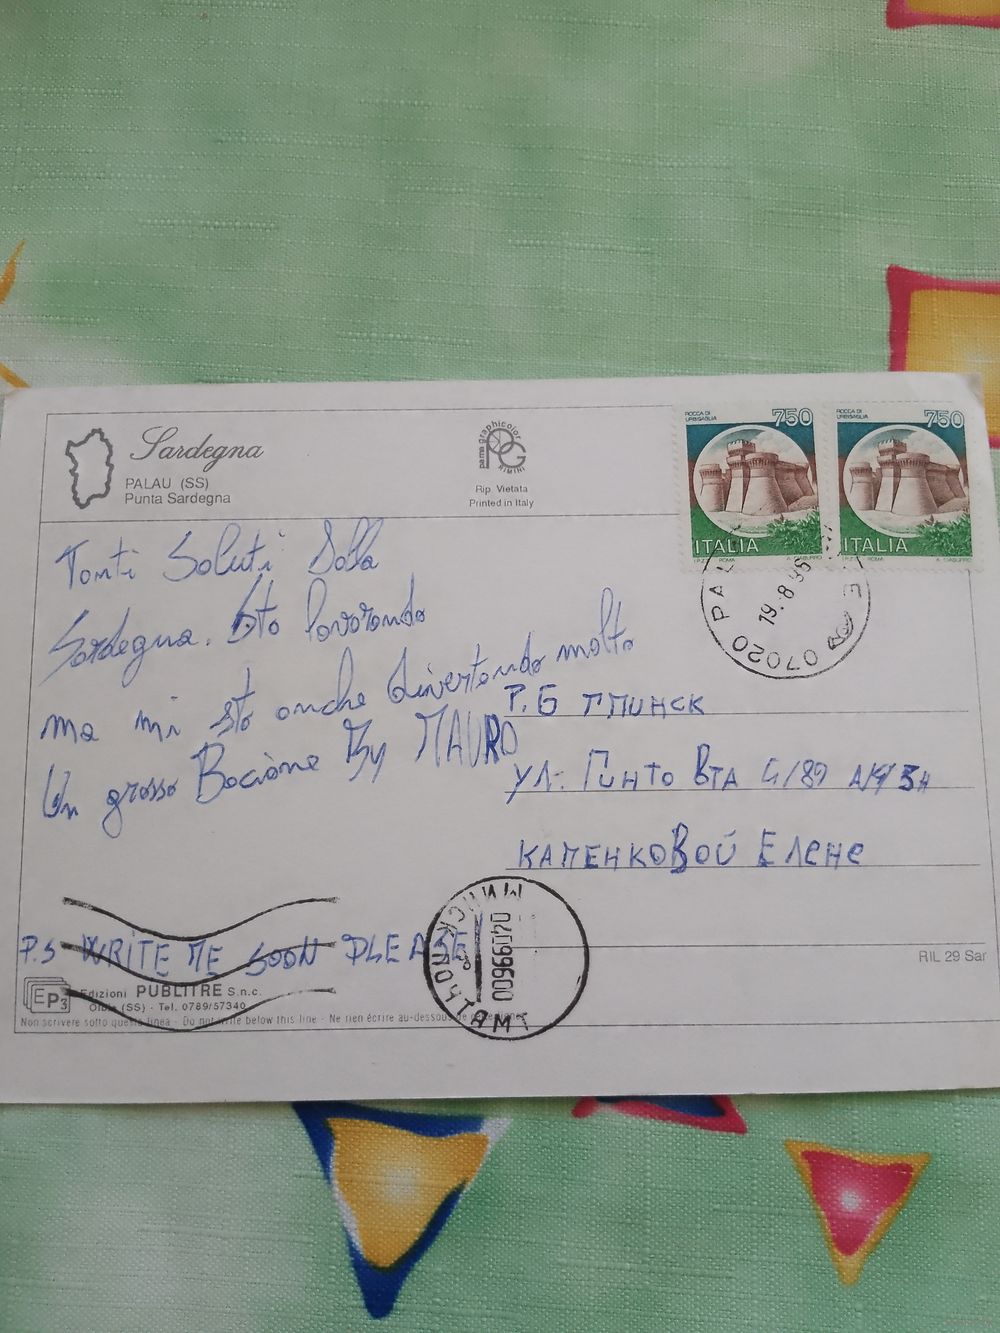 Sardegna
PALAU (SS)
Punta Sardegna
pama graphicolor
RIMINI
Rip. Vietata
Printed in Italy
ROCCA DI
URBISAGLIA
750
ITALIA
ROCCA DI
URBISAGLIA
750
ITALIA
07020 PAL
19.8.95
Tanti Saluti Dalla
Sardegna. Sto lavorando
ma mi sto anche divertendo molto
Un grosso Bacione By MAURO
Р.Б Г МИНСК
УЛ.
КАМЕНКОВОЙ ЕЛЕНЕ
P.S WRITE ME SOON PLEASE
МИНСК ПОЧТАМТ
RIL 29 Sar
EP3
Edizioni PUBLITRE S.n.c.
Olbia (SS) - Tel. 0789/57340
Non scrivere sotto questa linea - Do not write below this line - Ne rien écrire au-dessous de